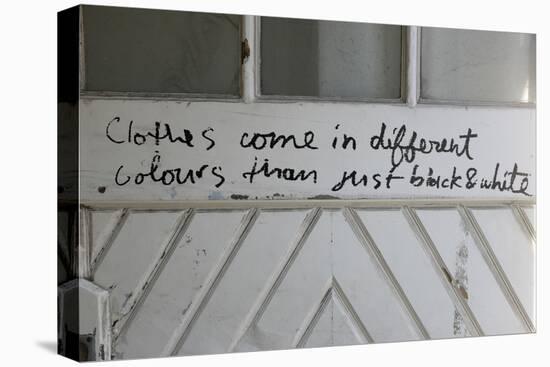 Clothes come in different
colours than just black & white